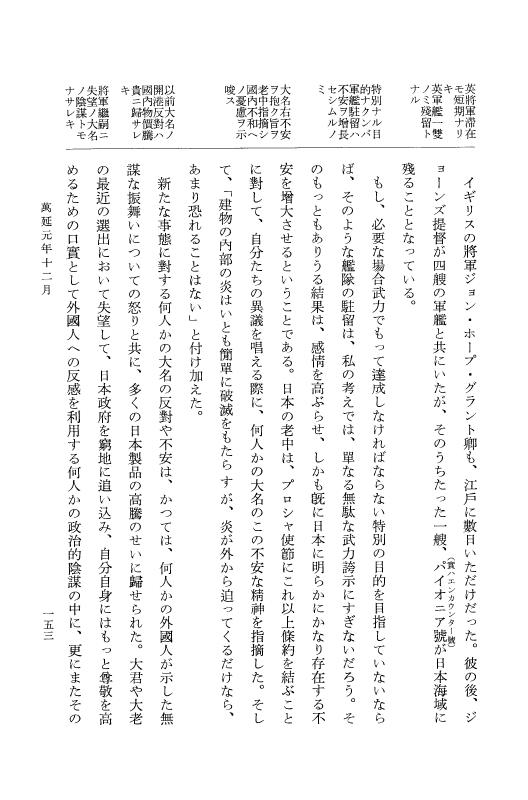 英將軍滞在
モ短期ナリ
キ
英軍艦一隻
ノミ殘留ト
ナル
特別ナル目
的ナクンバ
軍艦駐留ハ
不安ヲ增長
セシムルノ
ミ
大名右不安
ヲ抱ク旨ヲ
老中指摘シ
國内不和ヘ
ノ憂慮ヲ示
唆ス
以前大名ノ
開港反對ハ
國内物價騰
貴ニ歸サレ
キ
將軍繼嗣ニ
失望ノ大名
ノ陰謀トモ
ナサレキ
イギリスの將軍ジョン・ホープ・グラント卿も、江戶に數日いただけだった。彼の後、ジ
ョーンズ提督が四艘の軍艦と共にいたが、そのうちたった一艘、パイオニア號が日本海域に
(實ハエンカウンター號)
殘ることとなっている。
もし、必要な場合武力でもって達成しなければならない特別の目的を目指していないなら
ば、そのような艦隊の駐留は、私の考えでは、單なる無駄な武力誇示にすぎないだろう。そ
のもっともありうる結果は、感情を高ぶらせ、しかも既に日本に明らかにかなり存在する不
安を增大させるということである。日本の老中は、プロシャ使節にこれ以上條約を結ぶこと
に對して、自分たちの異議を唱える際に、何人かの大名のこの不安な精神を指摘した。そし
て、「建物の内部の炎はいとも簡單に破滅をもたらすが、炎が外から迫ってくるだけなら、
あまり恐れることはない」と付け加えた。
新たな事態に對する何人かの大名の反對や不安は、かつては、何人かの外國人が示した無
謀な振舞いについての怒りと共に、多くの日本製品の高騰のせいに歸せられた。大君や大老
の最近の選出において失望して、日本政府を窮地に追い込み、自分自身にはもっと尊敬を高
めるための口實として外國人への反感を利用する何人かの政治的陰謀の中に、更にまたその
萬延元年十二月
一五三